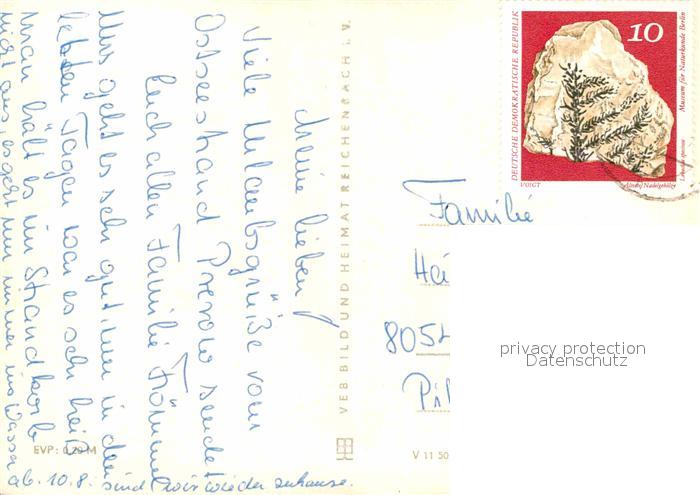 Meine lieben!
Viele Urlaubsgrüße vom
Ostseestrand Prerow sendet
Euch allen Familie
Uns geht es sehr gut, nur in den
letzten Tagen war es sehr heiß
man hält es im Strandkorb
nicht aus, es geht nur immer ins Wasser
ab. 10.8. sind wir wieder zuhause.
VEB BILD UND HEIMAT REICHENBACH i. V.
EVP: 0,20 M
V 11 50
DEUTSCHE DEMOKRATISCHE REPUBLIK
10
Museum für Naturkunde Berlin
VOIGT
Familie
8054
privacy protection
Datenschutz